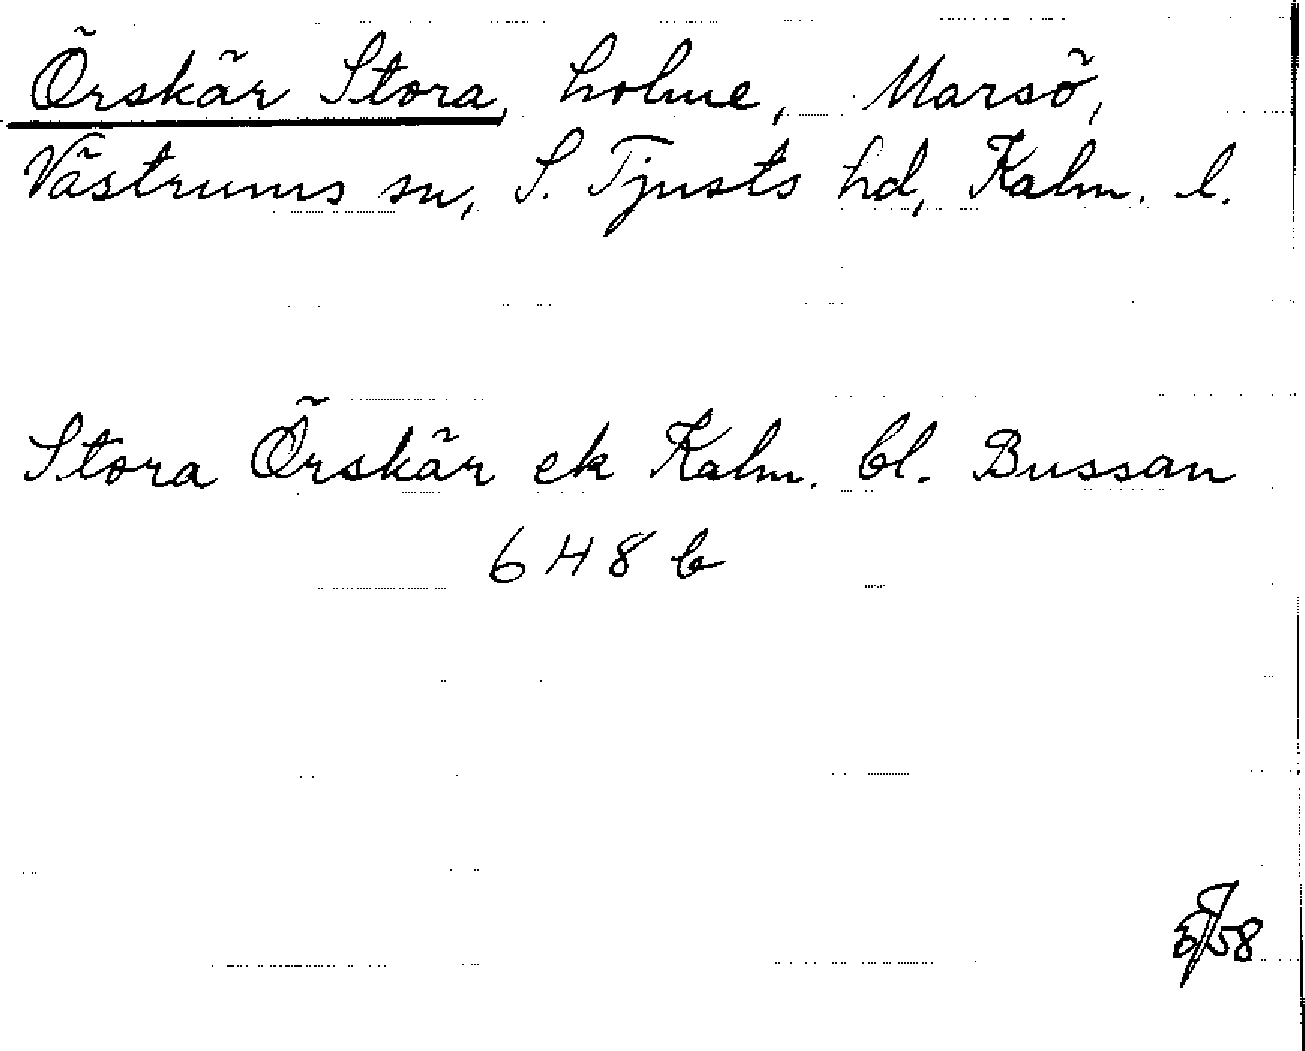 Örskär Stora, holme, Marsö,
Västrums sn, S. Tjusts hd, Kalm. l.
Stora Örskär ek Kalm. bl. Bussan
6 H 8 b